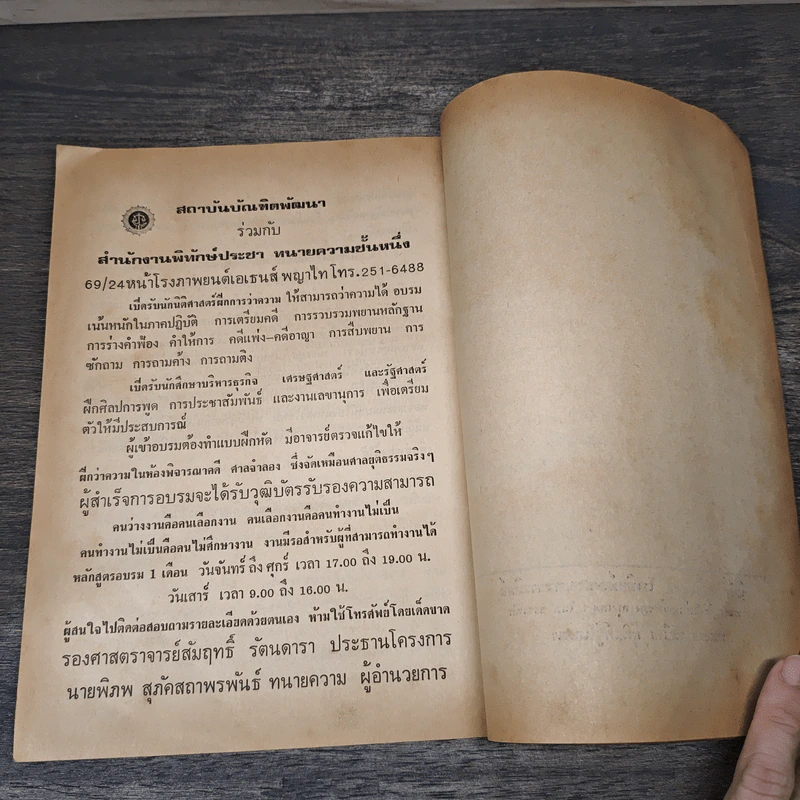 สถาบันบัณฑิตพัฒนา
ร่วมกับ
สำนักงานพิทักษ์ประชา ทนายความชั้นหนึ่ง
69/24หน้าโรงภาพยนต์เอเธนส์ พญาไท โทร.251-6488
เปิดรับนักนิติศาสตร์ฝึกการว่าความ ให้สามารถว่าความได้ อบรม
เน้นหนักในภาคปฏิบัติ การเตรียมคดี การรวบรวมพยานหลักฐาน
การร่างคำฟ้อง คำให้การ คดีแพ่ง-คดีอาญา การสืบพยาน การ
ซักถาม การถามค้าง การถามติง
เปิดรับนักศึกษาบริหารธุรกิจ เศรษฐศาสตร์ และรัฐศาสตร์
ฝึกศิลปการพูด การประชาสัมพันธ์ และงานเลขานุการ เพื่อเตรียม
ตัวให้มีประสบการณ์
ผู้เข้าอบรมต้องทำแบบฝึกหัด มีอาจารย์ตรวจแก้ไขให้
ฝึกว่าความในห้องพิจารณาคดี ศาลจำลอง ซึ่งจัดเหมือนศาลยุติธรรมจริงๆ
ผู้สำเร็จการอบรมจะได้รับวุฒิบัตรรับรองความสามารถ
คนว่างงานคือคนเลือกงาน คนเลือกงานคือคนทำงานไม่เป็น
คนทำงานไม่เป็นคือคนไม่ศึกษางาน งานมีรอสำหรับผู้ที่สามารถทำงานได้
หลักสูตรอบรม 1 เดือน วันจันทร์ ถึง ศุกร์ เวลา 17.00 ถึง 19.00 น.
วันเสาร์ เวลา 9.00 ถึง 16.00 น.
ผู้สนใจไปติดต่อสอบถามรายละเอียดด้วยตนเอง ห้ามใช้โทรศัพย์โดยเด็ดขาด
รองศาสตราจารย์สัมฤทธิ์ รัตนดารา ประธานโครงการ
นายพิภพ สุภัคสถาพรพันธ์ ทนายความ ผู้อำนวยการ